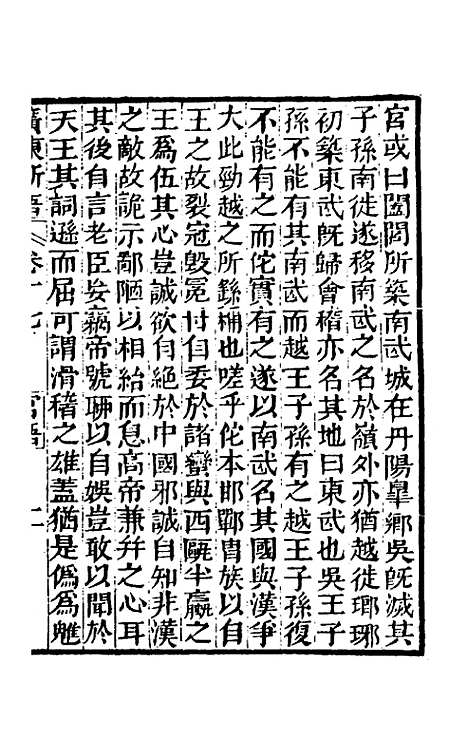 宮或曰闔閭所築南武城在丹陽皐鄉吳旣滅其
子孫南徙遂移南武之名於嶺外亦猶越徙瑯琊
初築東武旣歸會稽亦名其地曰東武也吳王子
孫不能有其南武而越王子孫有之越王子孫復
不能有之而佗實有之遂以南武名其國與漢爭
大此勁越之所繇稱也嗟乎佗本邯鄲冑族以自
王之故裂冠毀冕甘自委於諸蠻與西甌半羸之
王爲伍其心豈誠欲自絕於中國邪誠自知非漢
之敵故詭示鄙陋以相紿而息高帝兼幷之心耳
其後自言老臣妄竊帝號聊以自娛豈敢以聞於
天王其詞遜而屈可謂滑稽之雄蓋猶是僞爲魋
廣東新語 卷十七 宮語 二